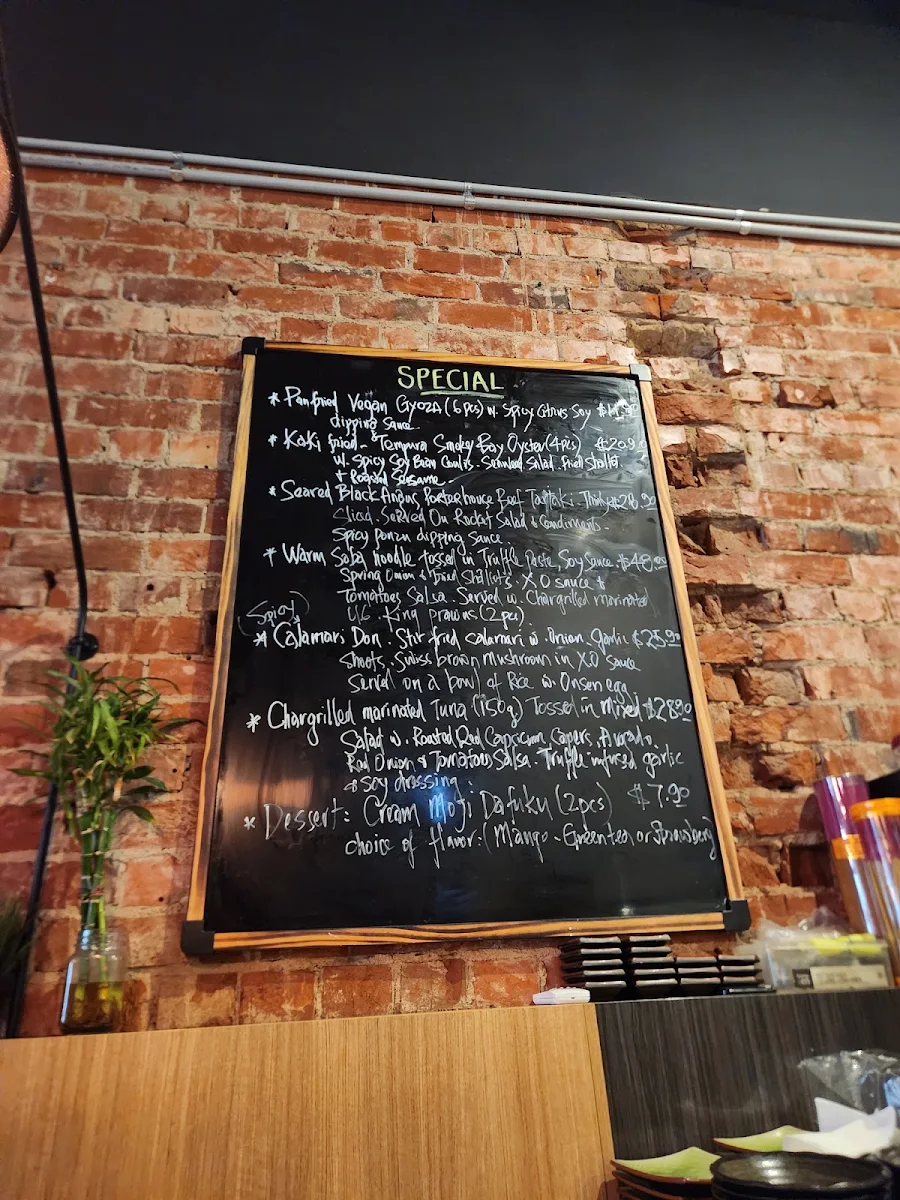 SPECIAL
* Panfried Vegan Gyoza (6 pcs) w. Spicy Citrus Soy
dipping sauce
* Kaki fried - Tempura Smoky Bay Oyster (4 pcs) $20.9
w. Spicy Soy Bean Coulis - Seaweed Salad. Fried Shallot
+ Roasted Sesame.
* Seared Black Angus Porterhouse Beef Tataki - Thinly $28.90
Sliced. Served On Rocket Salad & Condiments -
Spicy ponzu dipping sauce
* Warm Soba noodle tossed in Truffle Paste, Soy Sauce.
Spring Onion & Fried Shallots. XO sauce &
Tomatoes Salsa. Served w. Chargrilled marinated
U6 - King prawns (2 pc).
(Spicy)
* Calamari Don. Stir fried calamari w. Onion, Garlic $25.90
Shoots, Swiss brown mushroom in XO sauce
Served on a bowl of Rice w. Onsen egg
* Chargrilled marinated Tuna (150g) Tossed in Mixed $28.90
Salad w. Roasted Red Capsicum, Capers, Avocado,
Red Onion & Tomatoes Salsa - Truffle infused garlic
& Soy dressing.
* Dessert: Cream Moji Dafuku (2pcs) $7.90
choice of flavor: (Mango - Greentea or Strawberry)